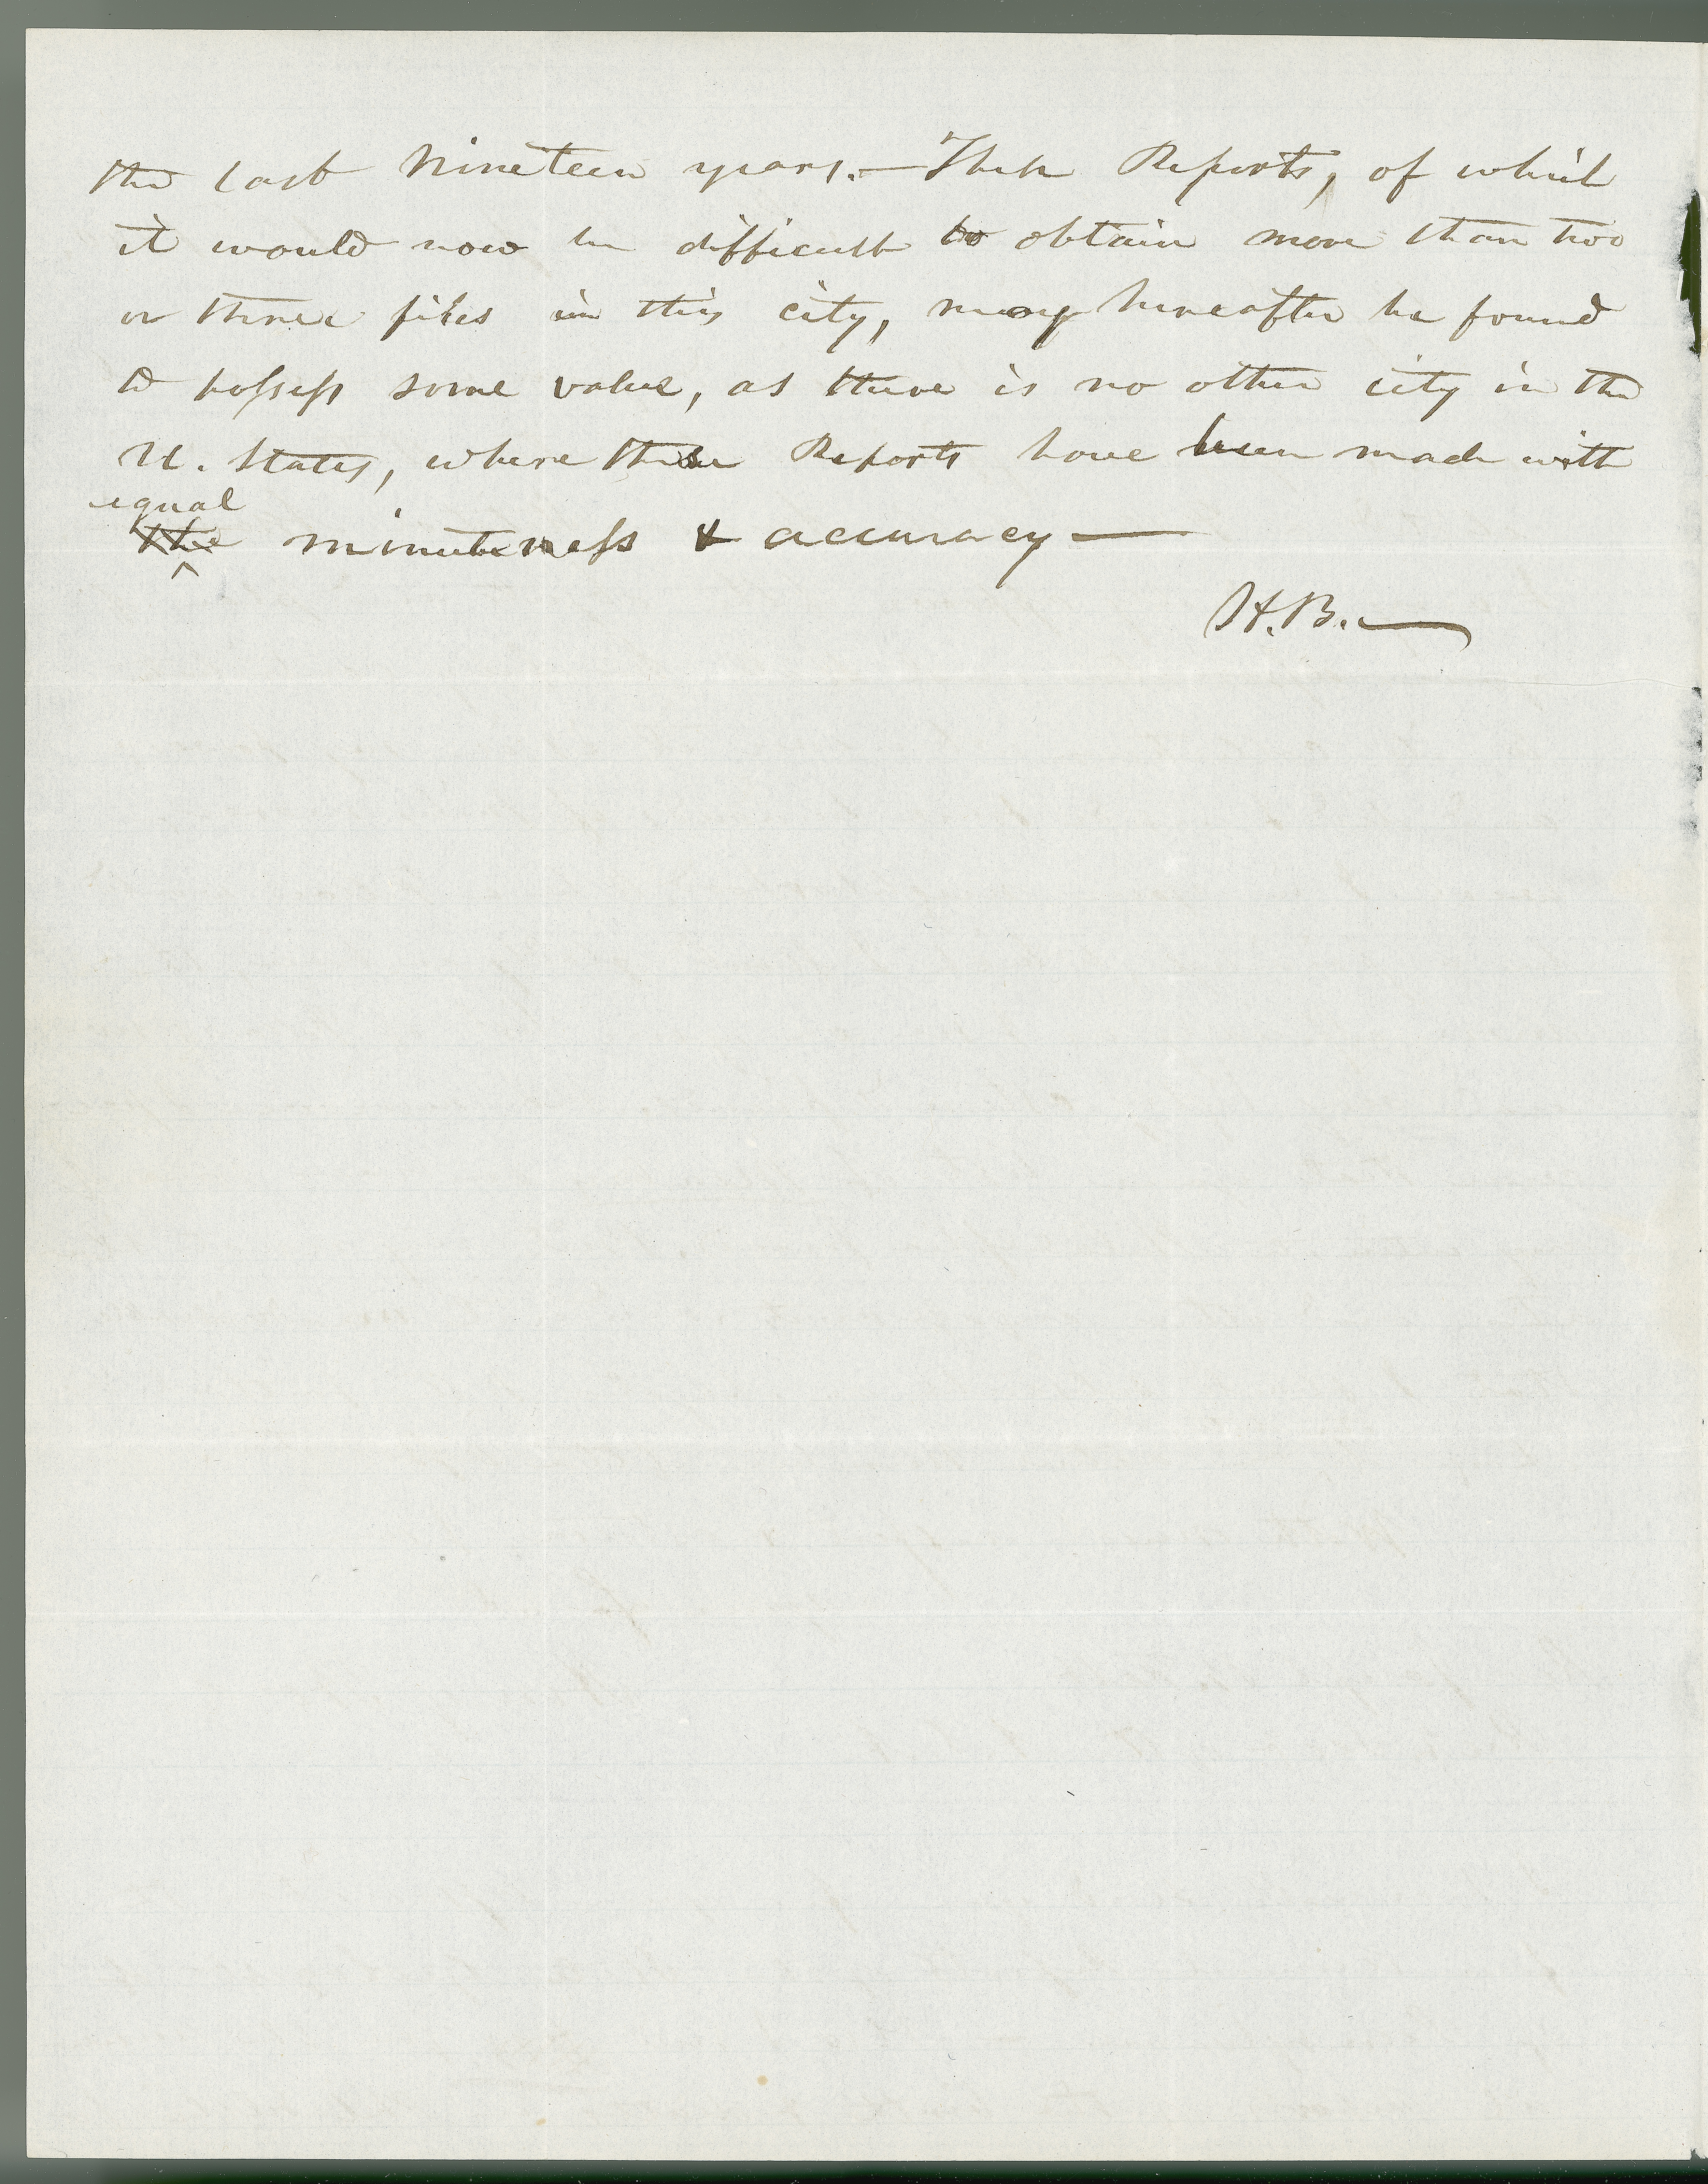 the last Nineteen years.— These Reports, of which
it would now be difficult to obtain more than two
or three files in this city, may hereafter be found
to possess some value, as there is no other city in the
U. States, where these Reports have been made with
equal
the minuteness & accuracy—
H.B.—